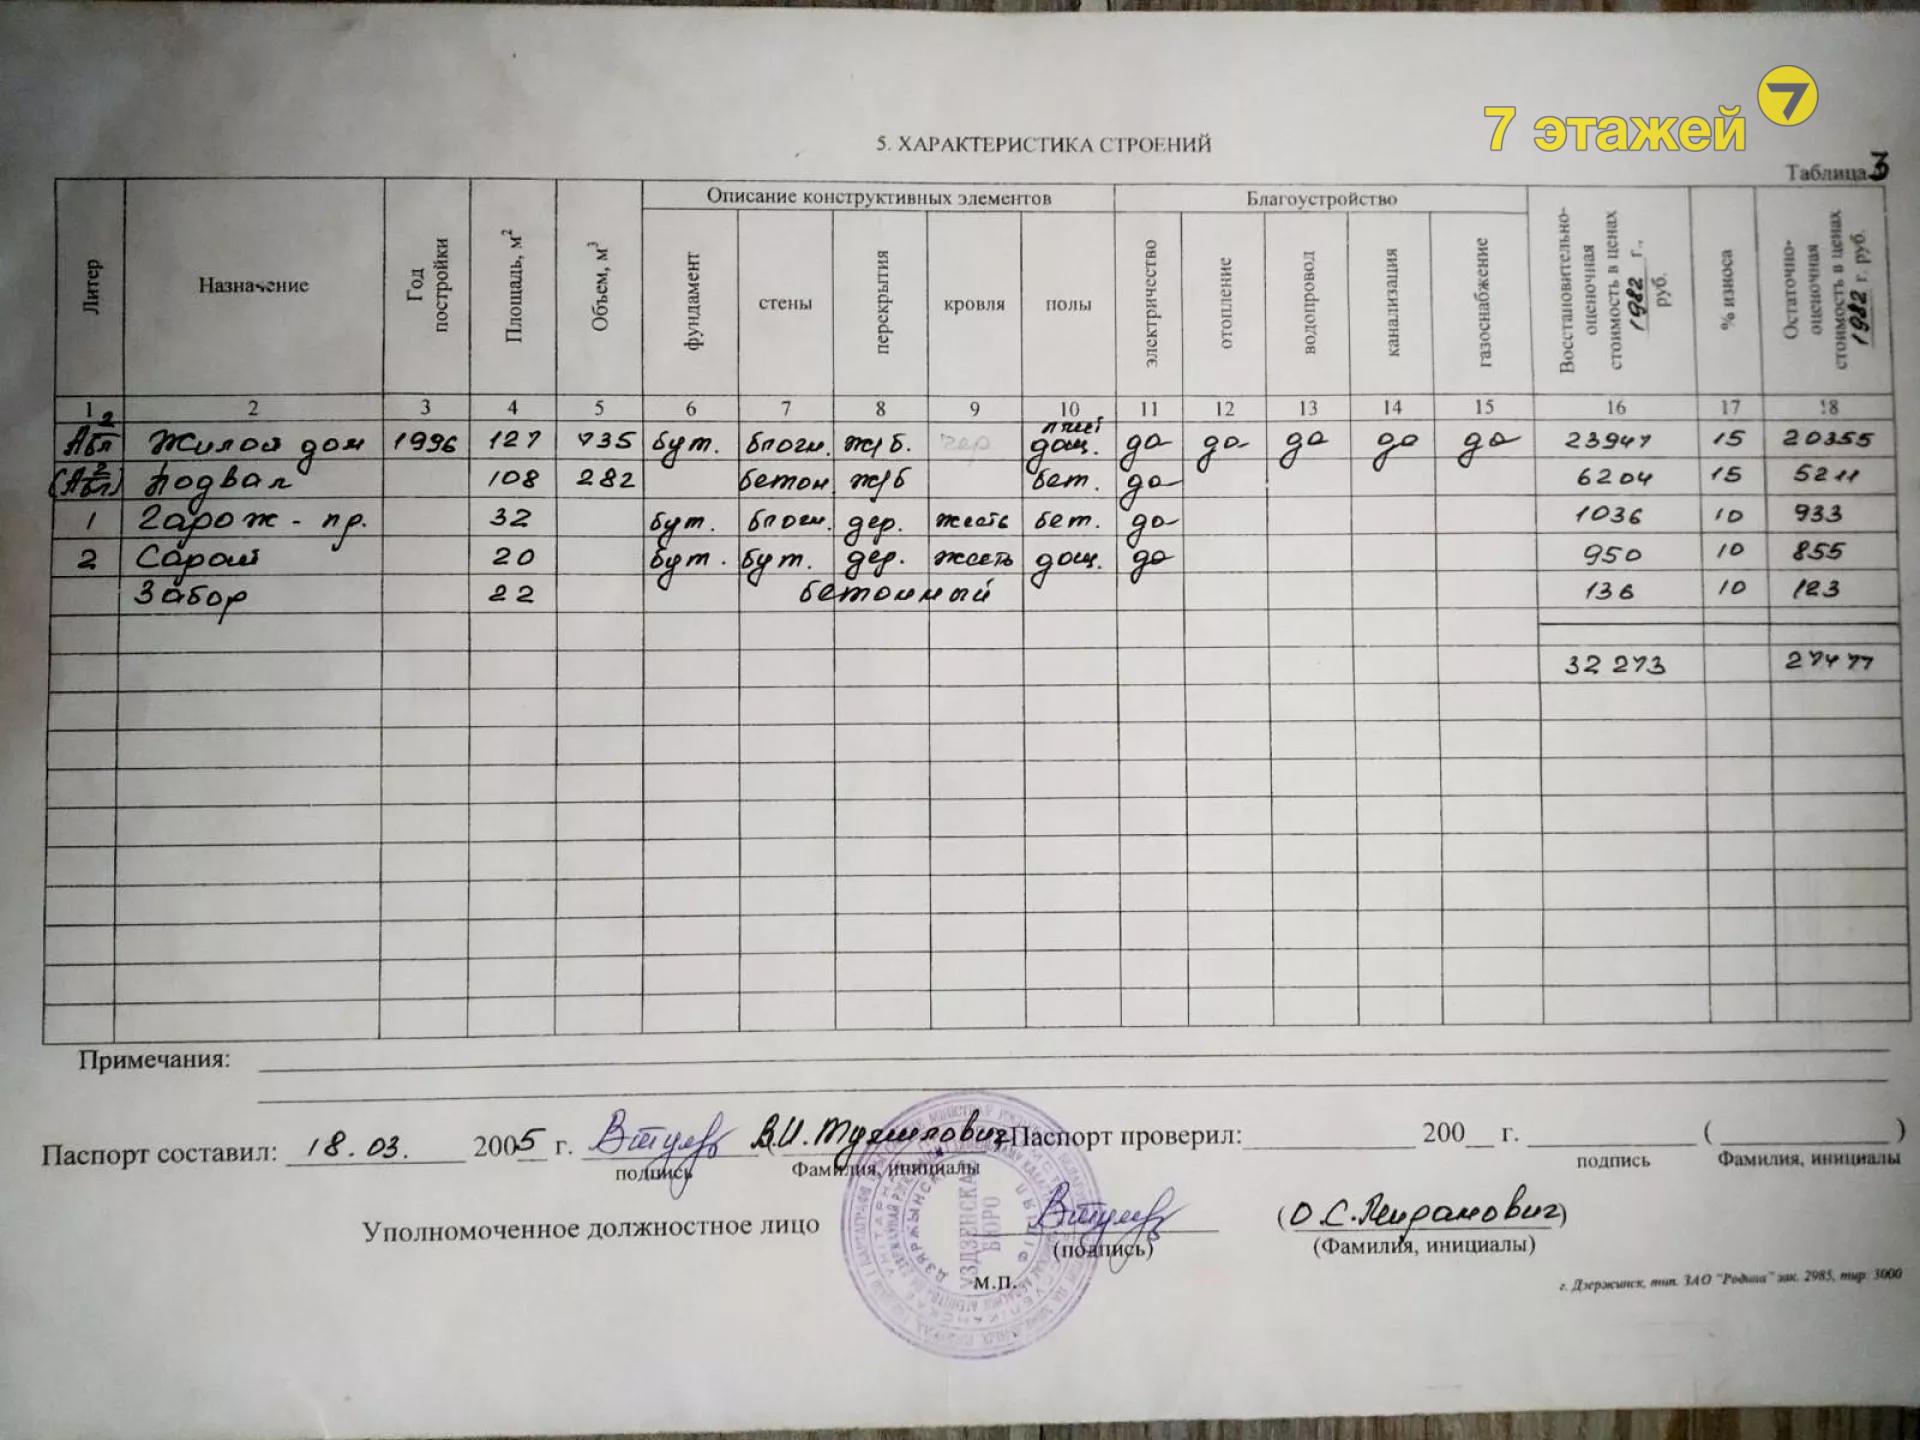 7 этажей 7
5. ХАРАКТЕРИСТИКА СТРОЕНИЙ
Таблица 3
Литер Назначение Год постройки Площадь, м² Объем, м³ Описание конструктивных элементов Благоустройство Восстановительно-оценочная стоимость в ценах 1982 г., руб. % износа Остаточно-оценочная стоимость в ценах 1982 г. руб.
фундамент стены перекрытия кровля полы электричество отопление водопровод канализация газоснабжение
1 2 3 4 5 6 7 8 9 10 11 12 13 14 15 16 17 18
Жилой дом 1996 127 735 бут. блочн. ж/б. дощ. да да да да да 23947 15 20355
Подвал 108 282 бетон ж/б бет. да 6204 15 5211
1 Гараж - пр. 32 бут. блочн. дер. жесть бет. да 1036 10 933
2 Сарай 20 бут. бут. дер. жесть дощ. да 950 10 855
Забор 22 бетонный 136 10 123
32 273 27477
Примечания:
Паспорт составил: 18.03. 2005 г. В.И. Паспорт проверил: 200 г. ( )
подпись Фамилия, инициалы подпись Фамилия, инициалы
Уполномоченное должностное лицо (О.С. )
(подпись) (Фамилия, инициалы)
УЗДЗЕНСКАЕ БЮРО
м.п.
г. Дзержинск, тип. ЗАО "Родина" зак. 2985, тир. 3000